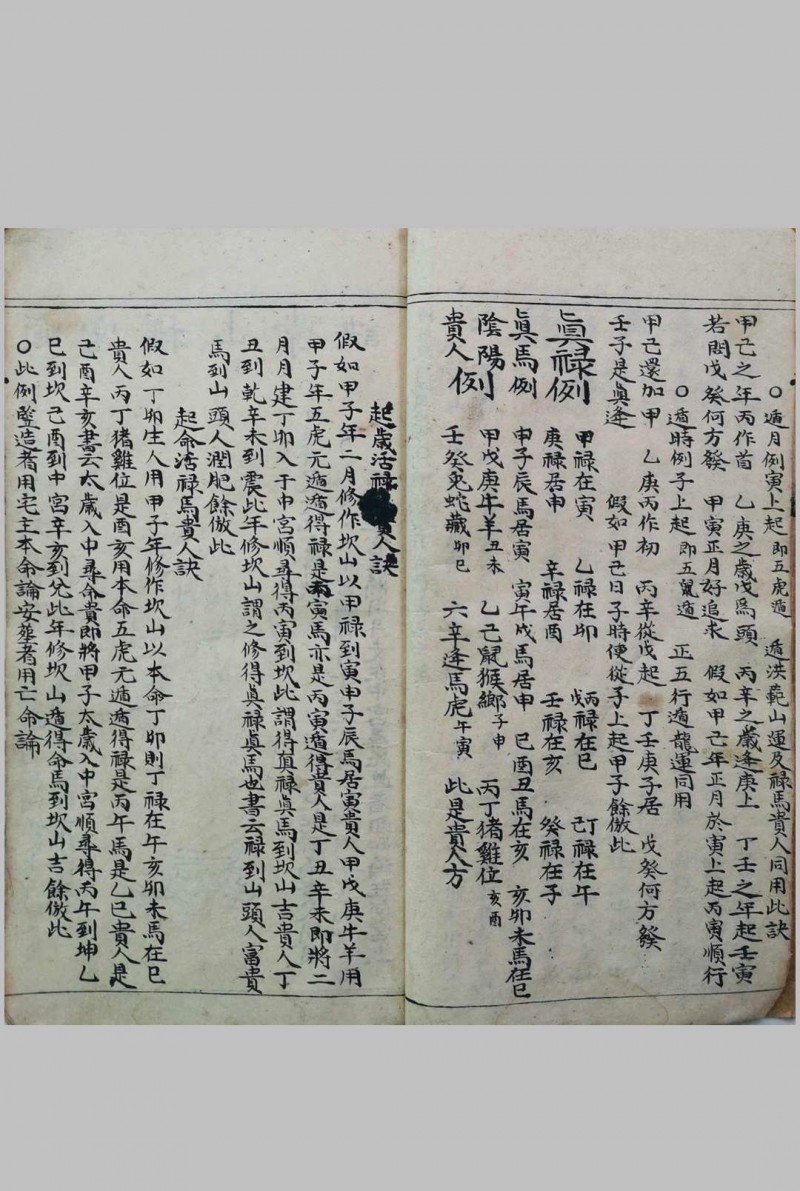 ○遁月例寅上起 即五虎遁 遁洪範山運及禄馬貴人同用此訣
甲己之年丙作首 乙庚之歲戊爲頭 丙辛之歲逢庚上 丁壬之年起壬寅
若問戊癸何方發 甲寅正月好追求 假如甲己年正月於寅上起丙寅順行
○遁時例子上起 即五鼠遁 正五行遁龍運同用
甲己還加甲 乙庚丙作初 丙辛從戊起 丁壬庚子居 戊癸何方發
壬子是真逢 假如甲己日子時便從子上起甲子餘倣此
眞禄例 甲禄在寅 乙禄在卯 丙禄在巳 丁禄在午
庚禄居申 辛禄居酉 壬禄在亥 癸禄在子
眞馬例 申子辰馬居寅 寅午戌馬居申 巳酉丑馬在亥 亥卯未馬在巳
陰陽貴人例 甲戊庚牛羊 丑未 乙己鼠猴鄉 子申 丙丁猪雞位 亥酉
壬癸兔蛇藏 卯巳 六辛逢馬虎 午寅 此是貴人方
起歲活禄貴人訣
假如甲子年二月修作坎山以甲禄到寅申子辰馬居寅貴人甲戊庚牛羊用
甲子年五虎元遁遁得禄是丙寅馬亦是丙寅遁得貴人是丁丑辛未即將二
月月建丁卯入于中宮順尋得丙寅到坎此謂得真禄眞馬到坎山吉貴人丁
丑到乾辛未到震此年修坎山謂之修得眞禄眞馬也書云禄到山頭人富貴
馬到山頭人潤肥餘倣此
起命活禄馬貴人訣
假如丁卯生人用甲子年修作坎山以本命丁卯則丁禄在午亥卯未馬在巳
貴人丙丁猪雞位是酉亥用本命五虎元遁遁得禄是丙午馬是乙巳貴人是
己酉辛亥書云太歲入中尋命貴即將甲子太歲入中宮順尋得丙午到坤乙
巳到坎己酉到中宮辛亥到兌此年修坎山遁得命馬到坎山吉餘倣此
○此例豎造者用宅主本命論安葬者用亡命論